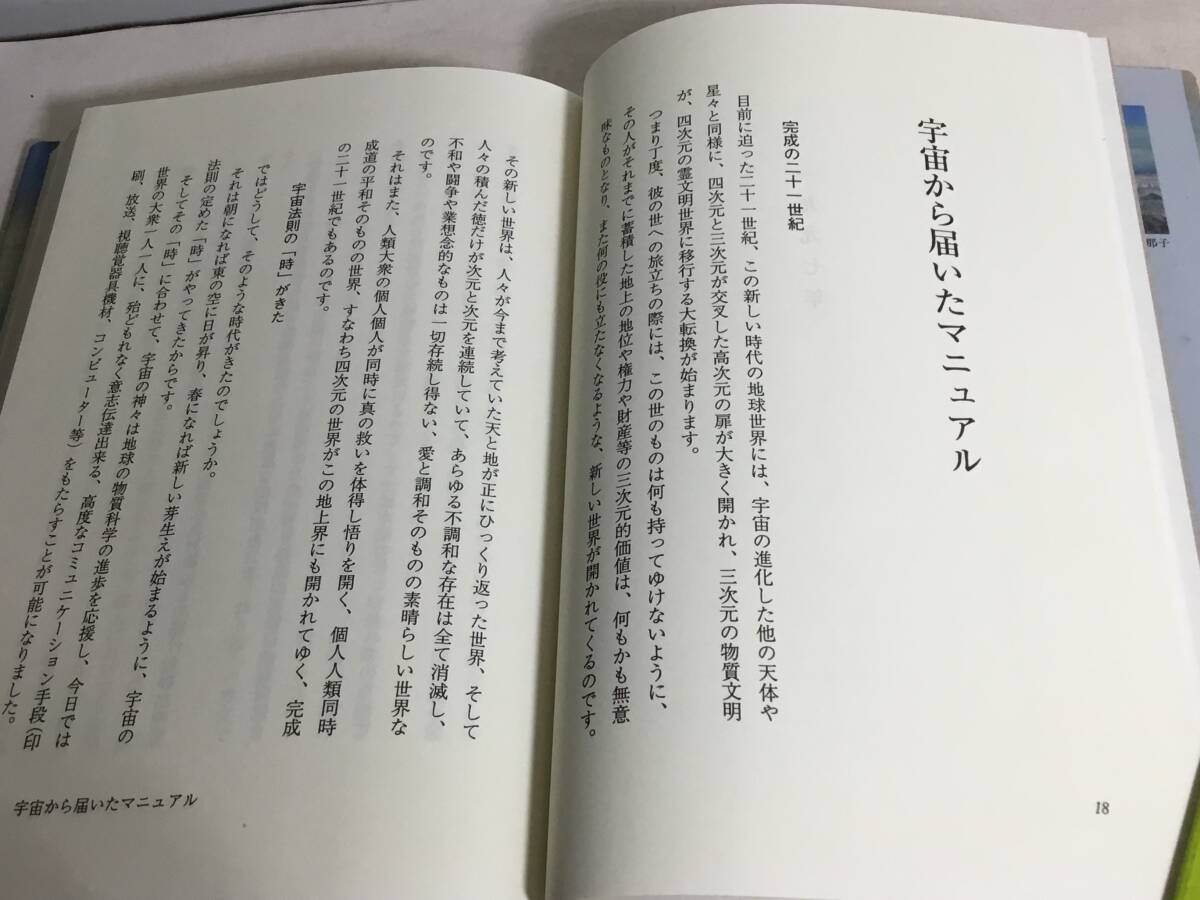 宇宙から届いたマニュアル
完成の二十一世紀
目前に迫った二十一世紀、この新しい時代の地球世界には、宇宙の進化した他の天体や
星々と同様に、四次元と三次元が交叉した高次元の扉が大きく開かれ、三次元の物質文明
が、四次元の霊文明世界に移行する大転換が始まります。
つまり丁度、彼の世への旅立ちの際には、この世のものは何も持ってゆけないように、
その人がそれまでに蓄積した地上の地位や権力や財産等の三次元的価値は、何もかも無意
味なものとなり、また何の役にも立たなくなるような、新しい世界が開かれてくるのです。
18
その新しい世界は、人々が今まで考えていた天と地が正にひっくり返った世界、そして
人々の積んだ徳だけが次元と次元を連続していて、あらゆる不調和な存在は全て消滅し、
不和や闘争や業想念的なものは一切存続し得ない、愛と調和そのものの素晴らしい世界な
のです。
それはまた、人類大衆の個人個人が同時に真の救いを体得し悟りを開く、個人人類同時
成道の平和そのものの世界、すなわち四次元の世界がこの地上界にも開かれてゆく、完成
の二十一世紀でもあるのです。
宇宙法則の「時」がきた
ではどうして、そのような時代がきたのでしょうか。
それは朝になれば東の空に日が昇り、春になれば新しい芽生えが始まるように、宇宙の
法則の定めた「時」がやってきたからです。
そしてその「時」に合わせて、宇宙の神々は地球の物質科学の進歩を応援し、今日では
世界の大衆一人一人に、殆どもれなく意志伝達出来る、高度なコミュニケーション手段(印
刷、放送、視聴覚器具機材、コンピューター等)をもたらすことが可能になりました。
宇宙から届いたマニュアル
耶子